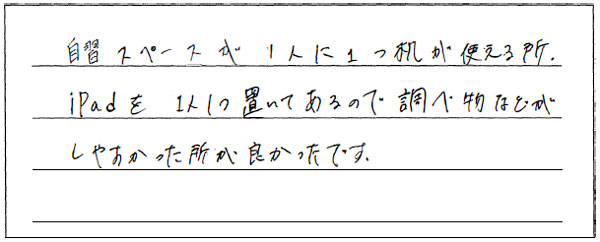 自習スペースが1人に1つ机が使える所.
iPadを1人1つ置いてあるので調べ物などが
しやすかった所が良かったです.